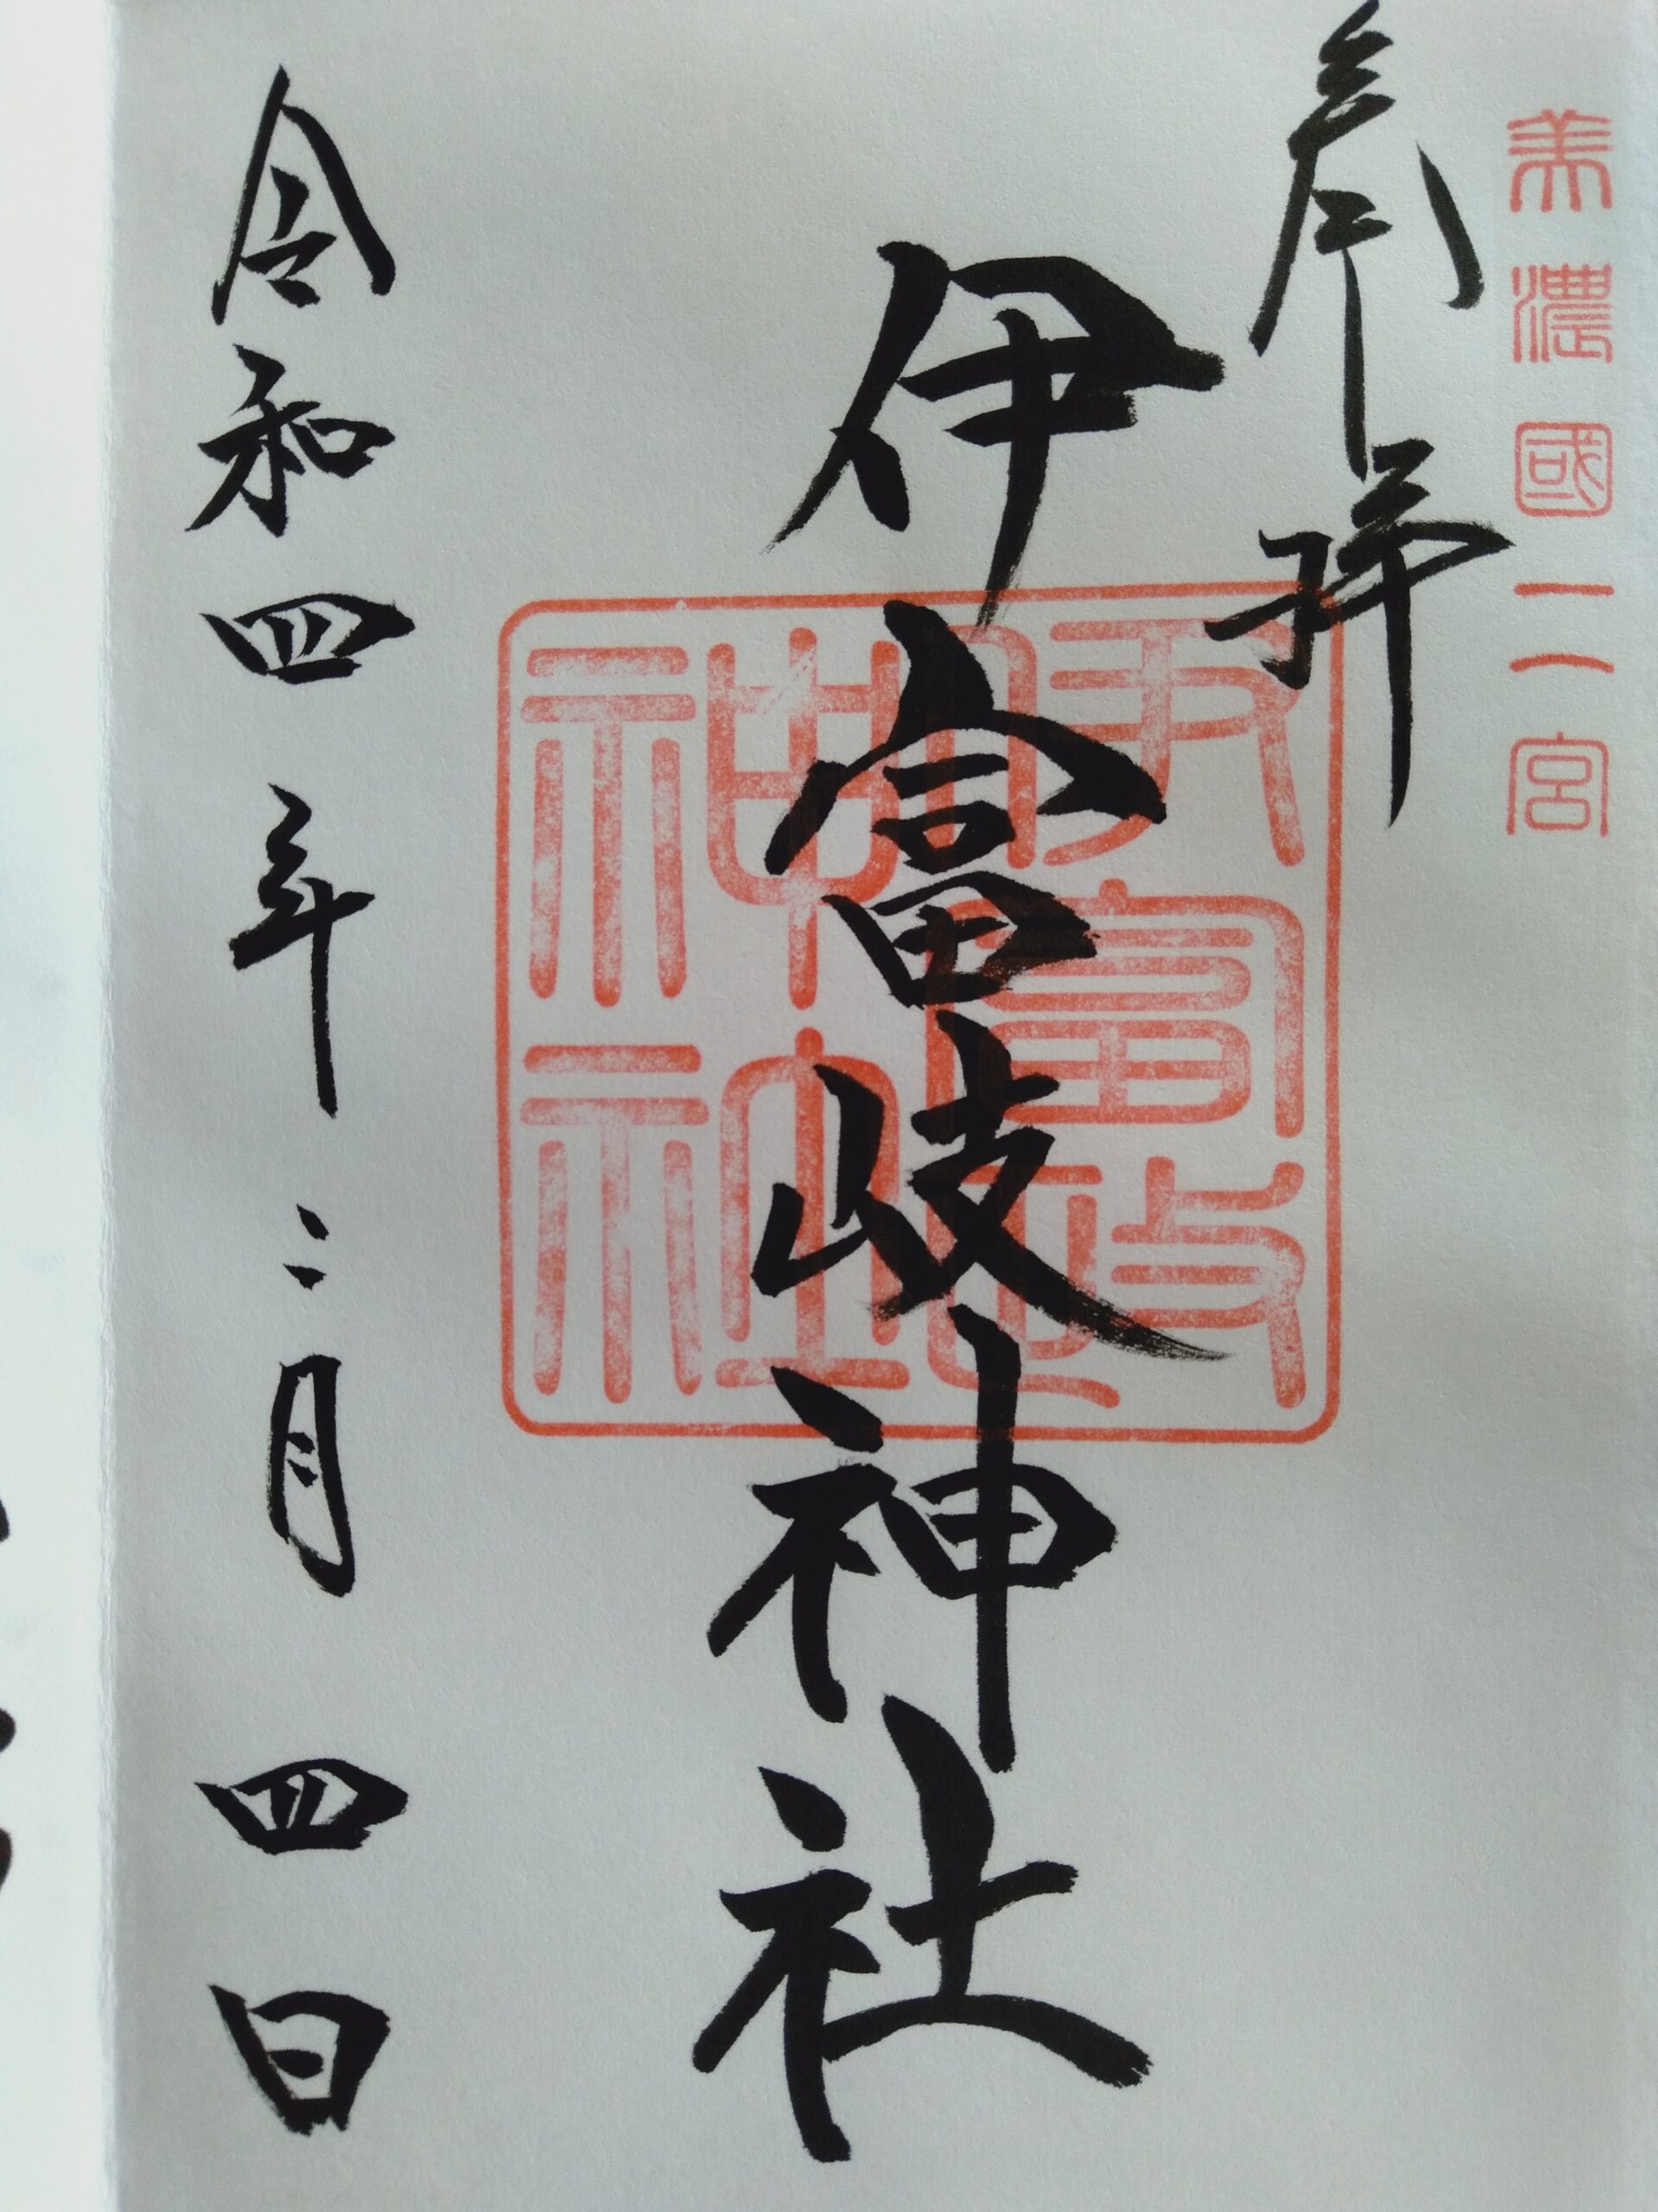 美濃國二宮
奉拝
伊富岐神社
伊富岐神社
令和四年二月四日